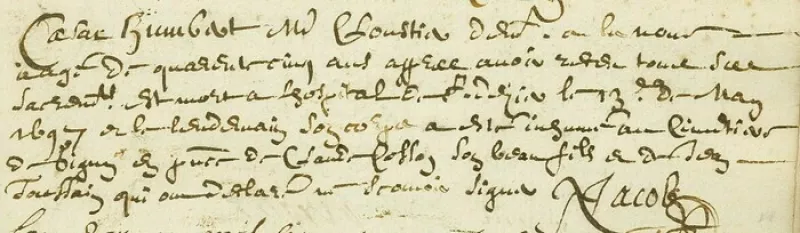 Cæsar Humbert M^e Cloustier dem^t. en la neuve
aagé de quarente cinq ans appree avoir receu tous see
sacrem^ts. est mort a lhospital de S^t. dizier le 13^e. de May
1697 et le lendemain son corps a esté inhumé au Cimetiere
de Gigny en pnce de Claude Cosson son beau fils et de Jean
Toussain qui ont declaré ne scavoir signer Jacob